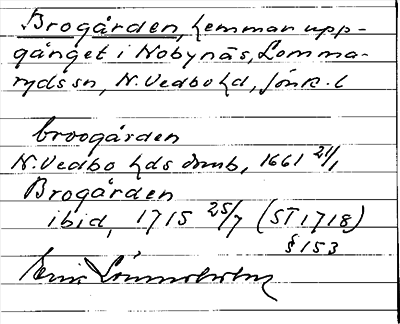 Brogården, hemman upp-
gånget i Nobynäs, Lomma-
rydssn, N. Vedbo hd, Jönk. l
broogården
N. Vedbo hds domb, 1661 21/1
Brogården
ibid, 1715 25/7 (ST 1718)
§ 153
Eric